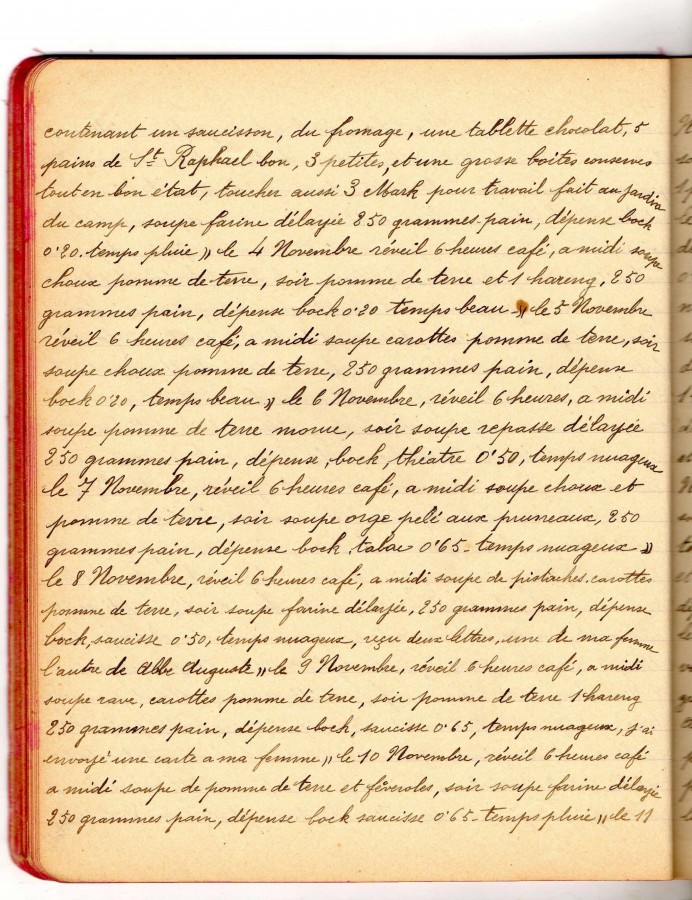 contenant un saucisson, du fromage, une tablette chocolat, 5
pains de St Raphael bon, 3 petites, et une grosse boites conserves
tout en bon état, toucher aussi 3 Mark pour travail fait au jardin
du camp, soupe farine délayée 250 grammes pain, dépense bock
0'20. temps pluie,, le 4 Novembre réveil 6 heures café, a midi soupe
choux pomme de terre, soir pomme de terre et 1 hareng, 250
grammes pain, dépense bock 0'20 temps beau -,, le 5 Novembre
réveil 6 heures café, a midi soupe carottes pomme de terre, soir
soupe choux pomme de terre, 250 grammes pain, dépense
bock 0'20, temps beau ,, le 6 Novembre, réveil 6 heures, a midi
soupe pomme de terre morue, soir soupe repasse délayée
250 grammes pain, dépense, bock, théatre 0'50, temps nuageux
le 7 Novembre, réveil 6 heures café, a midi soupe choux et
pomme de terre, soir soupe orge pelé aux pruneaux, 250
grammes pain, dépense bock tabac 0'65 - temps nuageux -,,
le 8 Novembre, réveil 6 heures café, a midi soupe de pistaches. carottes
pomme de terre, soir soupe farine délayée, 250 grammes pain, dépense
bock, saucisse 0'50, temps nuageux, reçu deux lettres, une de ma femme
l'autre de Abbe Auguste,, le 9 Novembre, réveil 6 heures café, a midi
soupe rave, carottes pomme de terre, soir pomme de terre 1 hareng
250 grammes pain, dépense bock, saucisse 0'65, temps nuageux, j'ai
envoyé une carte a ma femme,, le 10 Novembre, réveil 6 heures café
a midi soupe de pomme de terre et féveroles, soir soupe farine délayée
250 grammes pain, dépense bock saucisse 0'65 - temps pluie,, le 11